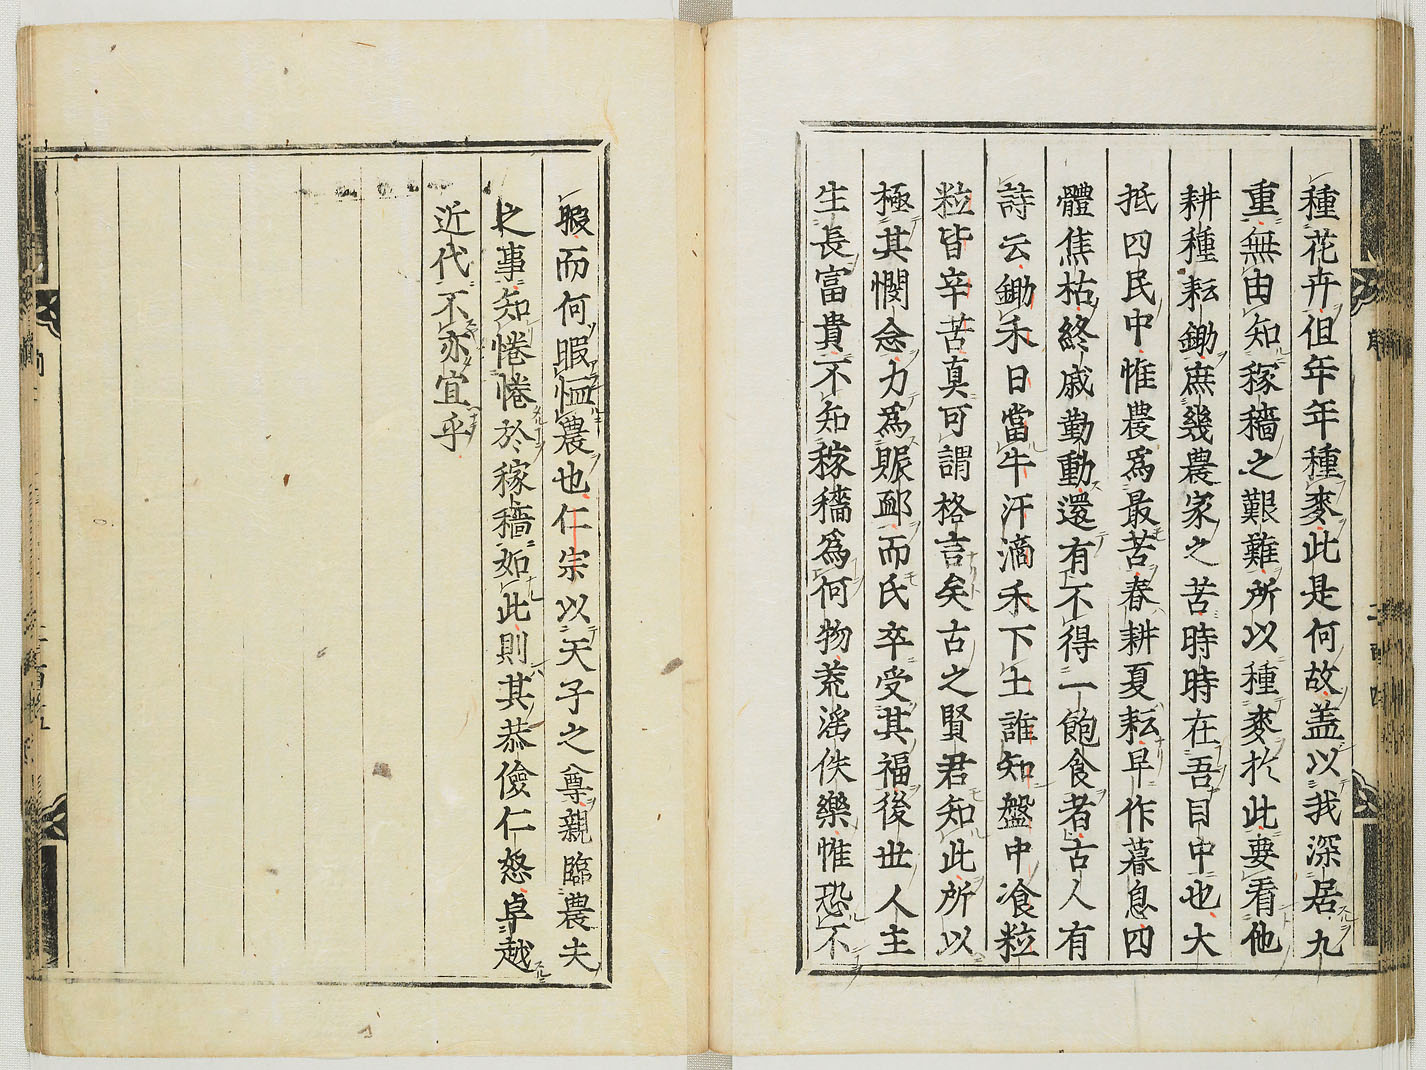 種花卉但年年種麥此是何故盖以我深居九
重無由知稼穡之艱難所以種麥於此要看他
耕種耘鋤庶幾農家之苦時時在吾目中也大
抵四民中惟農爲最苦春耕夏耘早作暮息四
體焦枯終歲勤動還有不得一飽食者古人有
詩云鋤禾日當午汗滴禾下土誰知盤中飡粒
粒皆辛苦真可謂格言矣古之賢君知此所以
極其憫念力爲賑邺而民卒受其福後世人主
生長富貴不知稼穡爲何物荒滛佚樂惟恐不
暇而何暇恤農也仁宗以天子之尊親臨農夫
之事知惓惓於稼穡如此則其恭儉仁恕卓越
近代不亦宜乎